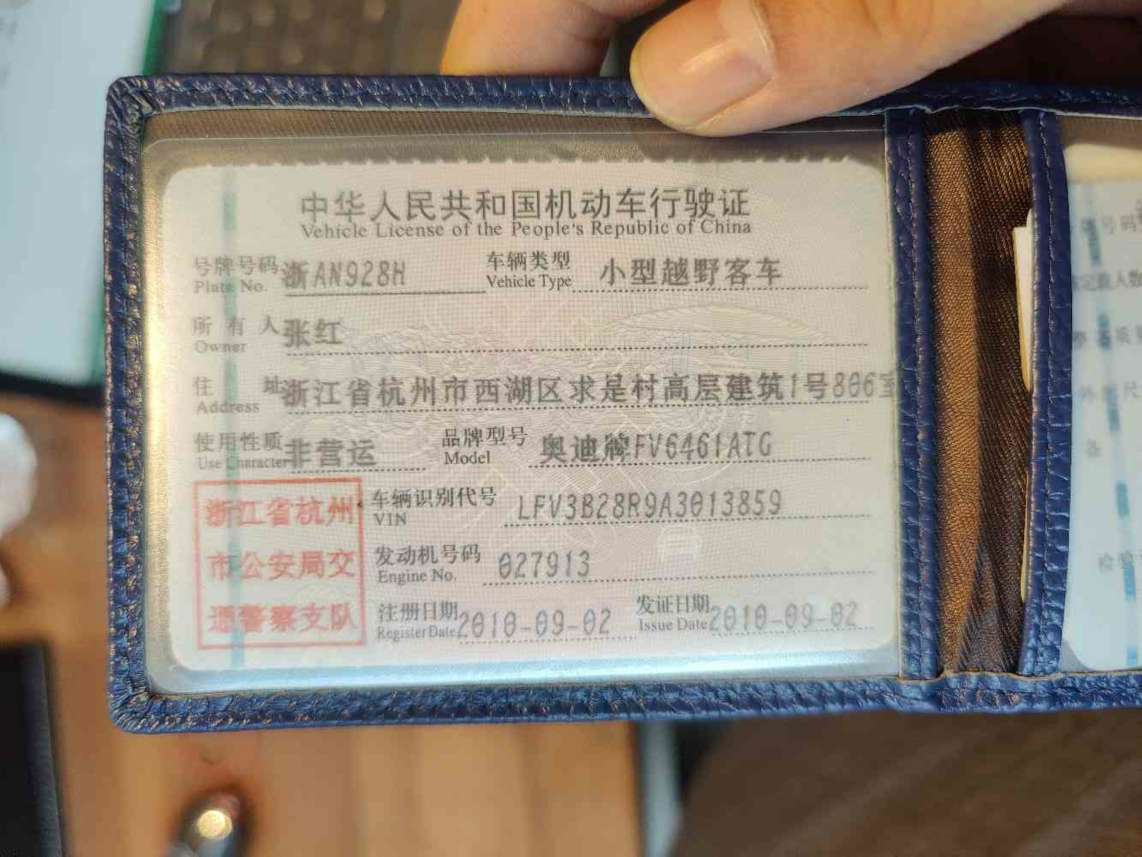 中华人民共和国机动车行驶证
Vehicle License of the People's Republic of China
号牌号码 浙AN928H 车辆类型 小型越野客车
Plate No. Vehicle Type
所有人 张红
Owner
住址 浙江省杭州市西湖区求是村高层建筑1号806室
Address
使用性质 非营运 品牌型号 奥迪牌FV6461ATG
Use Character Model
浙江省杭州
市公安局交
通警察支队
车辆识别代号 LFV3B28R9A3013859
VIN
发动机号码 027913
Engine No.
注册日期 2010-09-02 发证日期 2010-09-02
Register Date Issue Date
号码
定载人数
整备质
外廓尺
检验